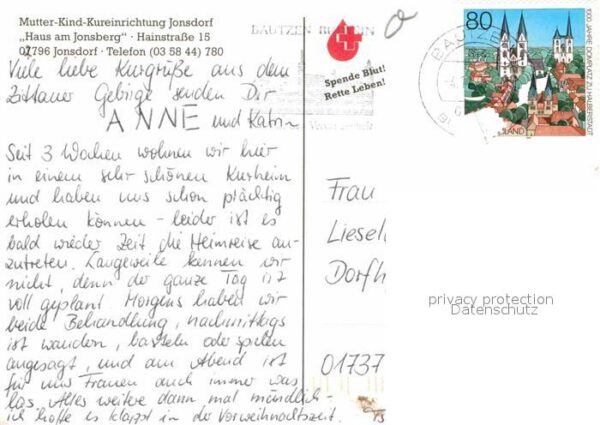 Mutter-Kind-Kureinrichtung Jonsdorf
"Haus am Jonsberg" · Hainstraße 15
02796 Jonsdorf · Telefon (03 58 44) 780
Viele liebe Kurgrüße aus dem
Zittauer Gebirge senden Dir
ANNE und Katrin
Seit 3 Wochen wohnen wir hier
in einem sehr schönen Kurheim
und haben uns schon prächtig
erholen können - leider ist es
bald wieder Zeit die Heimreise an-
zutreten. Langeweile kennen wir
nicht, denn der ganze Tag ist
voll geplant. Morgens haben wir
beide Behandlung, nachmittags
ist wandern, basteln oder spielen
angesagt, und am Abend ist
für uns Frauen auch immer was
los. Alles weitere dann mal mündlich -
ich hoffe es klappt in der Vorweihnachtszeit.
BAUTZEN
Spende Blut!
Rette Leben!
BAUTZEN
80
1000 JAHRE DOMPLATZ ZU HALBERSTADT
LAND
Frau
Liesel
Dorfh
01737
privacy protection
Datenschutz